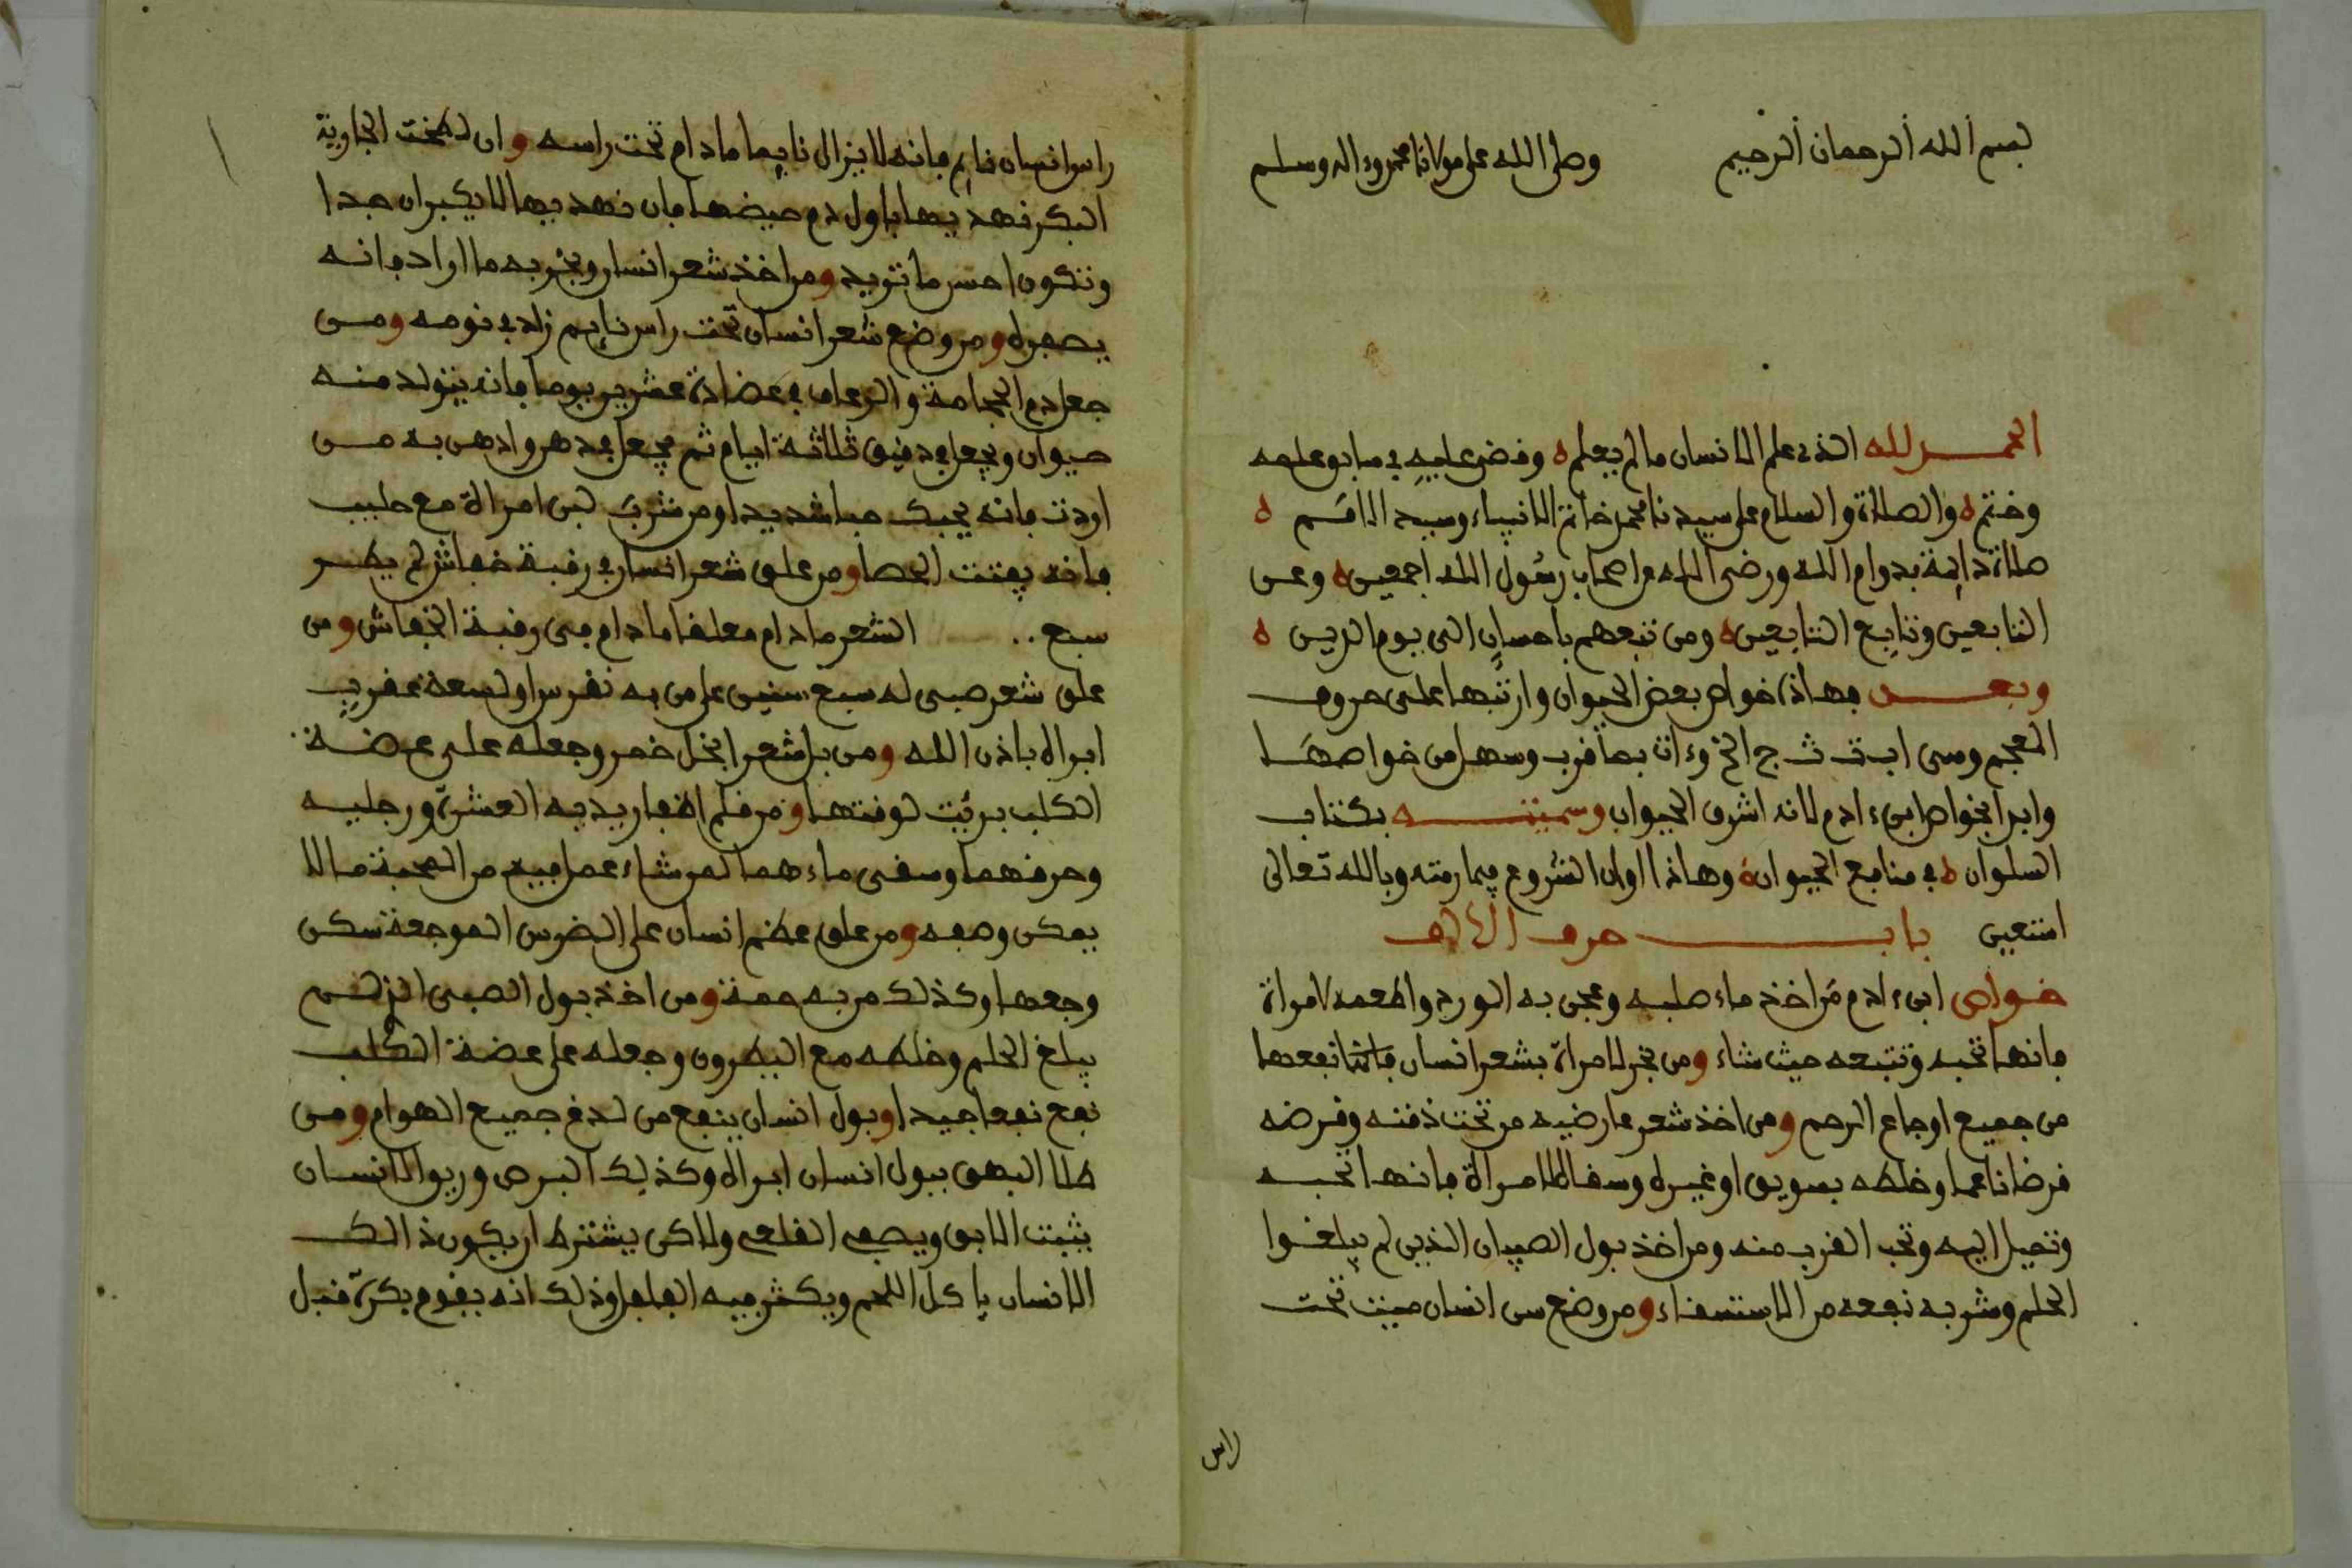 بسم الله الرحمان الرحيم وصلى الله على مولانا محمد وءاله وسلم
الحمد لله الذي علم الانسان ما لم يعلم وقضى عليه في سابق علمه
وختم والصلاة والسلام على سيدنا محمد خاتم الانبياء وسيد الامم
صلاة دايمة بدوام الله ورضي الله عن اصحاب رسول الله اجمعين وعن
التابعين وتابع التابعين ومن تبعهم باحسان الى يوم الدين
وبعد فهاذا خواص بعض الحيوان وارتبها على حروف
المعجم وهي ا ب ت ث ج الخ وءات بما قرب وسهل من خواصها
وابدا بخواص ابن ءادم لانه اشرف الحيوان وسميته بكتاب
السلوان في منافع الحيوان وهاذا اوان الشروع فيما رمته وبالله تعالى
استعين باب حرف الالف
خواص ابن ءادم من اخذ ماء صلبه وعجن به الورد واطعمه لامراة
فانها تحبه وتتبعه حيث شاء ومن بخر لامراة بشعر انسان نفعها
من جميع اوجاع الرحم ومن اخذ شعر عارضيه من تحت ذقنه وقرضه
قرضا ناعما وخلطه بسويق او غيره وسقاه لامراة فانها تحبه
وتميل اليه وتحب القرب منه ومن اخذ بول الصبيان الذين لم يبلغوا
الحلم وشربه نفعه من الاستسقاء ومن وضع سن انسان ميت تحت
راس
راس انسان نايم فانه لا يزال نايما ما دام تحت راسه وان لطخت الجارية
البكر نهديها باول دم حيضها فان نهديها لا يكبران جدا
وتكون احسن ما تريد ومن اخذ شعر انسان وبخر به ما اراد فانه
يصفر ومن وضع شعر انسان تحت راس نايم زاد في نومه ومن
جعل دم الحجامة والرعاف في عشرين يوما فانه يتولد منه
حيوان ويجعل في دقيق ثلاثة ايام ثم يجعل في دهن وادهن به من
اردت فانه يحبك حبا شديدا ومن شرب لبن امراة مع حليب
فانه يفتت الحصا ومن علق شعر انسان في رقبة خفاش لم يطر
سبع .. الشعر ما دام معلقا ما دام في رقبة الخفاش ومن
علق شعر صبي له سبع سنين على من به نقرس او لسعة عقرب
ابراه باذن الله ومن بل شعرا بخل خمر وجعله على عضة
الكلب بريت لوقتها ومن قلم اظفار يديه العشرة ورجليه
وحرقهما وسقى ماءهما لمن شاء عمل فيه من المحبة ما لا
يمكن وصفه ومن علق عظم انسان على الضرس الموجعة سكن
وجعها وكذلك من به حمة ومن اخذ بول الصبي الذي لم
يبلغ الحلم وخلطه مع البطرون وجعله على عضة الكلب
نفع نفعا جيدا وبول انسان ينفع من لدغ جميع الهوام ومن
طلا البهق ببول انسان ابراه وكذلك البرص وريق الانسان
يثبت الابق ويصفي القلعي ولاكن يشترط ان يكون ذالك
الانسان ياكل اللحم ويكثر فيه الفلفل وذلك انه يقوم بكرة قبل